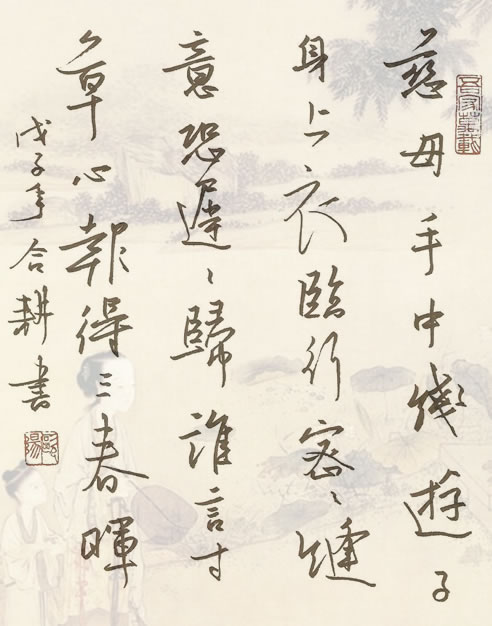 慈母手中綫遊子
身上衣臨行密々縫
意恐遲々歸誰言寸
草心報得三春暉
戊子年合耕書